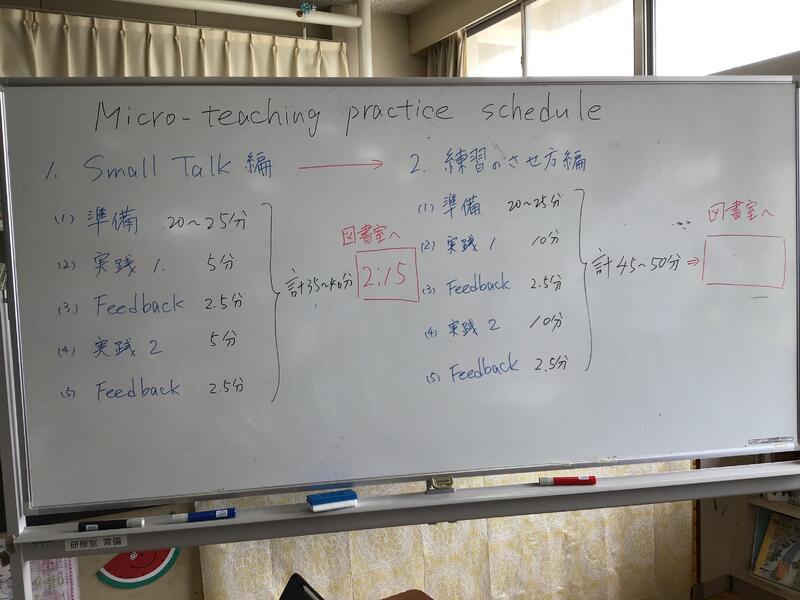 Micro-teaching practice schedule
1. Small Talk 編 → 2. 練習のさせ方編
(1) 準備 20~25分
(2) 実践 1. 5分
(3) Feedback 2.5分
(4) 実践 2 5分
(5) Feedback 2.5分
計35~40分
図書室へ
2:15
(1) 準備 20~25分
(2) 実践 1 10分
(3) Feedback 2.5分
(4) 実践 2 10分
(5) Feedback 2.5分
計45~50分⇒
図書室へ
研修室 常備